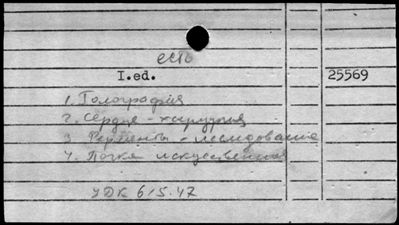 есть
I.ed. 25569
1. Голография
2. Сердце - хирургия
3. Ферменты - исследование
4. Почка искуственная
УДК 615.47